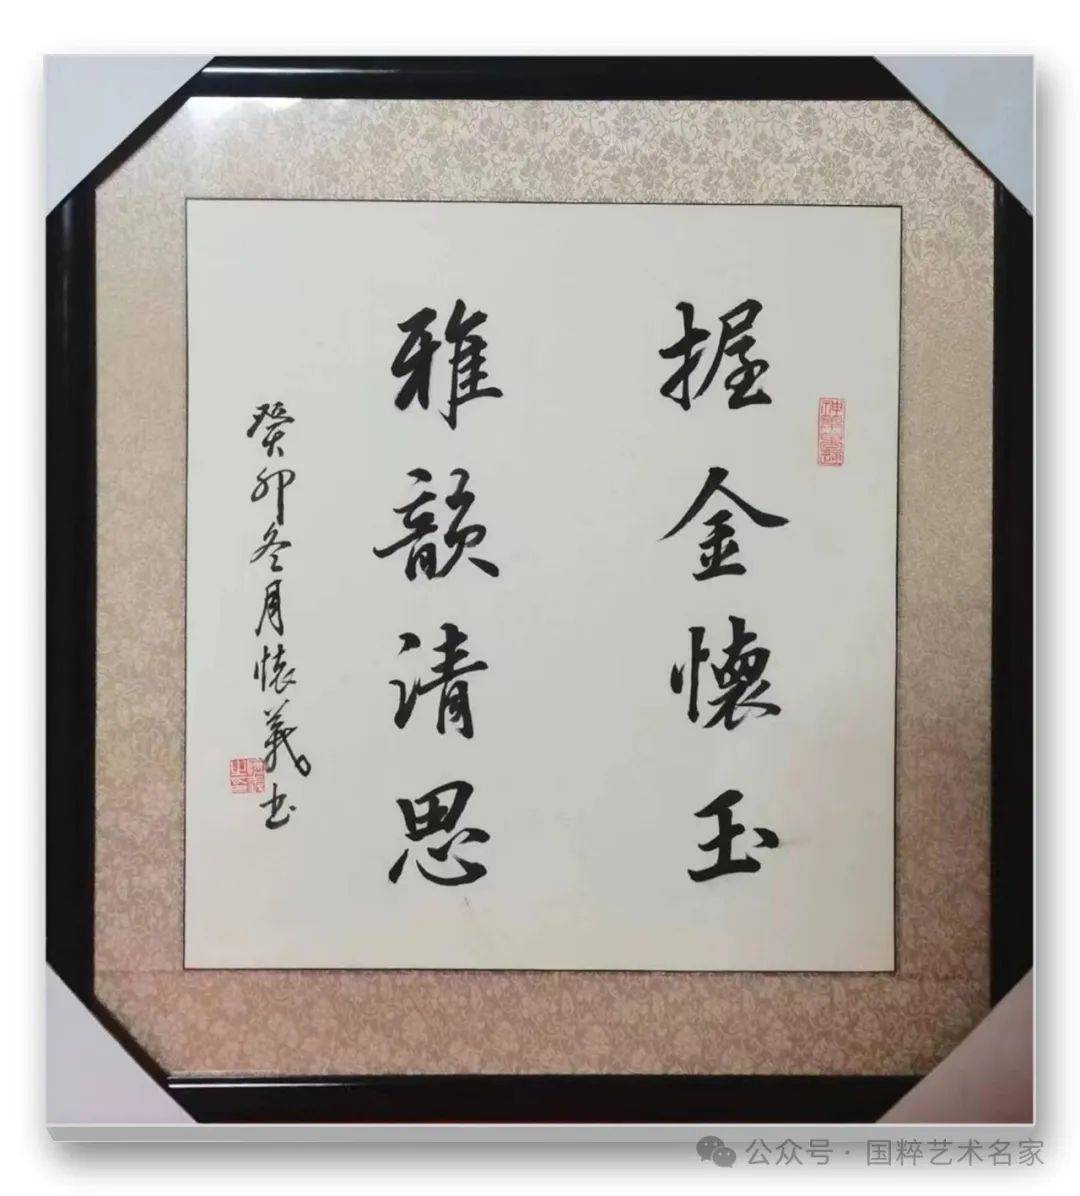 握金懷玉
雅韻清思
癸卯冬月懷義书
公众号·国粹艺术名家